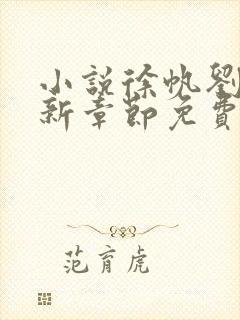 小說徐帆劉
新章節免費
范育虎